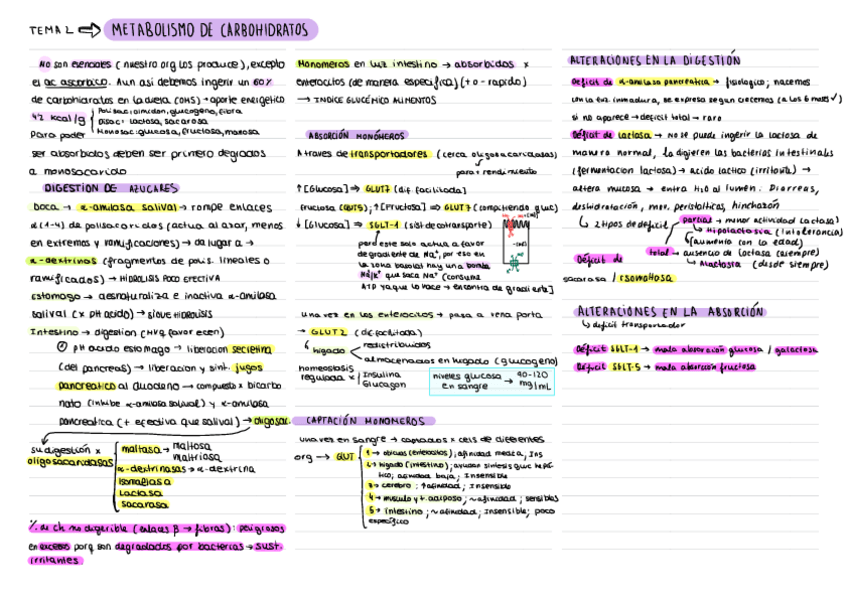 TEMA 2 → METABOLISMO DE CARBOHIDRATOS
No son esenciales (nuestro org los produce), excepto
el ac ascorbico. Aun asi debemos ingerir un 60%
de carbohidratos en la dieta (OMS) → aporte energetico
42 kcal/g
Polisac: almidon, glucogeno, fibra
Disac: lactosa, sacarosa
Monosac: glucosa, fructosa, manosa
Para poder
ser absorbidos deben ser primero degradados
a monosacarido
DIGESTION DE AZUCARES
boca → α-amilasa salival → rompe enlaces
α(1-4) de polisacaridos (actua al azar, menos
en extremos y ramificaciones) → da lugar a →
α-dextrinas (fragmentos de polis. lineales o
ramificados) → HIDROLISIS POCO EFECTIVA
Estomago → desnaturaliza e inactiva α-amilasa
salival (x pH acido) → SIGUE HIDROLISIS
Intestino → digestion (muy favorecen)
pH acido estomago → liberacion secretina
(del pancreas) → liberacion y sint. jugos
pancreatico al duodeno → compuesto x bicarbo
nato (inhibe α-amilasa salival) y α-amilasa
pancreatica (+ efectiva que salival) → oligosac.
su digestión x
oligosacaridasas
maltasa → maltosa
maltriosa
α-dextrinasas → α-dextrina
isomaltasa
Lactasa
sacarasa
% de ch no digerible (enlaces β → fibras): peligrosos
en exceso porq son degradados por bacterias → sust.
irritantes
Monomeros en luz intestino → absorbidos x
enterocitos (de manera especifica) (+ o - rapido)
→ INDICE GLUCÉMICO ALIMENTOS
ABSORCIÓN MONÓMEROS
A traves de transportadores (cerca oligosacaridasas)
para + rendimiento
↑[Glucosa] ⇒ GLUT2 (dif. facilitada)
Fructosa (GLUT5); ↑[Fructosa] ⇒ GLUT2 (compitiendo gluc)
↓[Glucosa] ⇒ SGLT-1 (sist. de cotransporte)
pero este solo actua a favor
de gradiente de Na⁺, por eso en
la zona basolat hay una bomba
Na/K⁺ que saca Na⁺ (consume
ATP ya que lo hace → en contra de gradiente)
una vez en los enterocitos → pasa a vena porta
→ GLUT 2 (dif. facilitada)
hígado
redistribuidos
almacenados en hígado (glucogeno)
homeostasis
regulada x
Insulina
Glucagon
niveles glucosa
en sangre → 90-120
mg/mL
CAPTACIÓN MONOMEROS
una vez en sangre → captados x cels de diferentes
org → GLUT
1 → ubicuos (eritrocitos); afinidad media; Ins
2 → higado (intestino); ayudar sintesis gluc hepá-
tico; afinidad baja; Insensible
3 → cerebro; ↑afinidad; Insensible
4 → musculo y t. adiposo; ~afinidad; sensibles
5 → intestino; ~afinidad; Insensible; poco
especifico
ALTERACIONES EN LA DIGESTIÓN
Déficit de α-amilasa pancreatica → fisiologico; nacemos
con la enz. inmadura, se expresa segun crecemos (a los 6 meses ✓)
si no aparece → deficit total → raro
Déficit de lactasa → no se puede ingerir la lactosa de
manera normal, la digieren las bacterias intestinales
(fermentacion lactosa) → acido lactico (irritante) →
altera mucosa → entra H₂O al lumen: Diarreas,
deshidratación, mov. peristalticos, hinchazón
2 tipos de deficit
parcial → menor actividad lactasa
Hipolactasia (intolerancia)
(aumenta con la edad)
total → ausencia de lactasa (siempre)
Alactasia (desde siempre)
Déficit de
sacarasa / isomaltasa
ALTERACIONES EN LA ABSORCIÓN
deficit transportador
Déficit SGLT-1 → mala absorción glucosa / galactosa
Déficit SGLT-5 → mala absorción fructosa